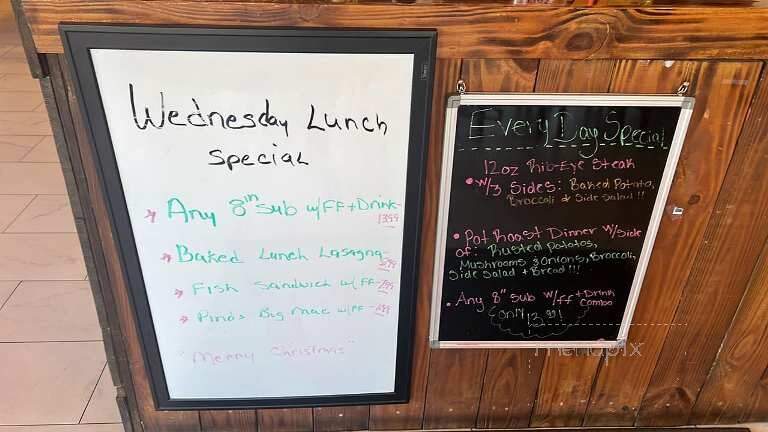 Wednesday Lunch
Special
Any 8in Sub w/FF + Drink-
13.99
Baked Lunch Lasagna-
Fish Sandwich w/FF-
Pino's Big Mac w/FF-
"Merry Christmas"
Every Day Special
12oz Rib-Eye Steak
• W/3 Sides: Baked Potato,
Broccoli & Side Salad!!
• Pot Roast Dinner W/Side
of: Rusted potatos,
Mushrooms & Onions, Broccoli,
Side Salad + Bread!!!
• Any 8" Sub w/FF + Drink
Combo
only 13.99!
menupix